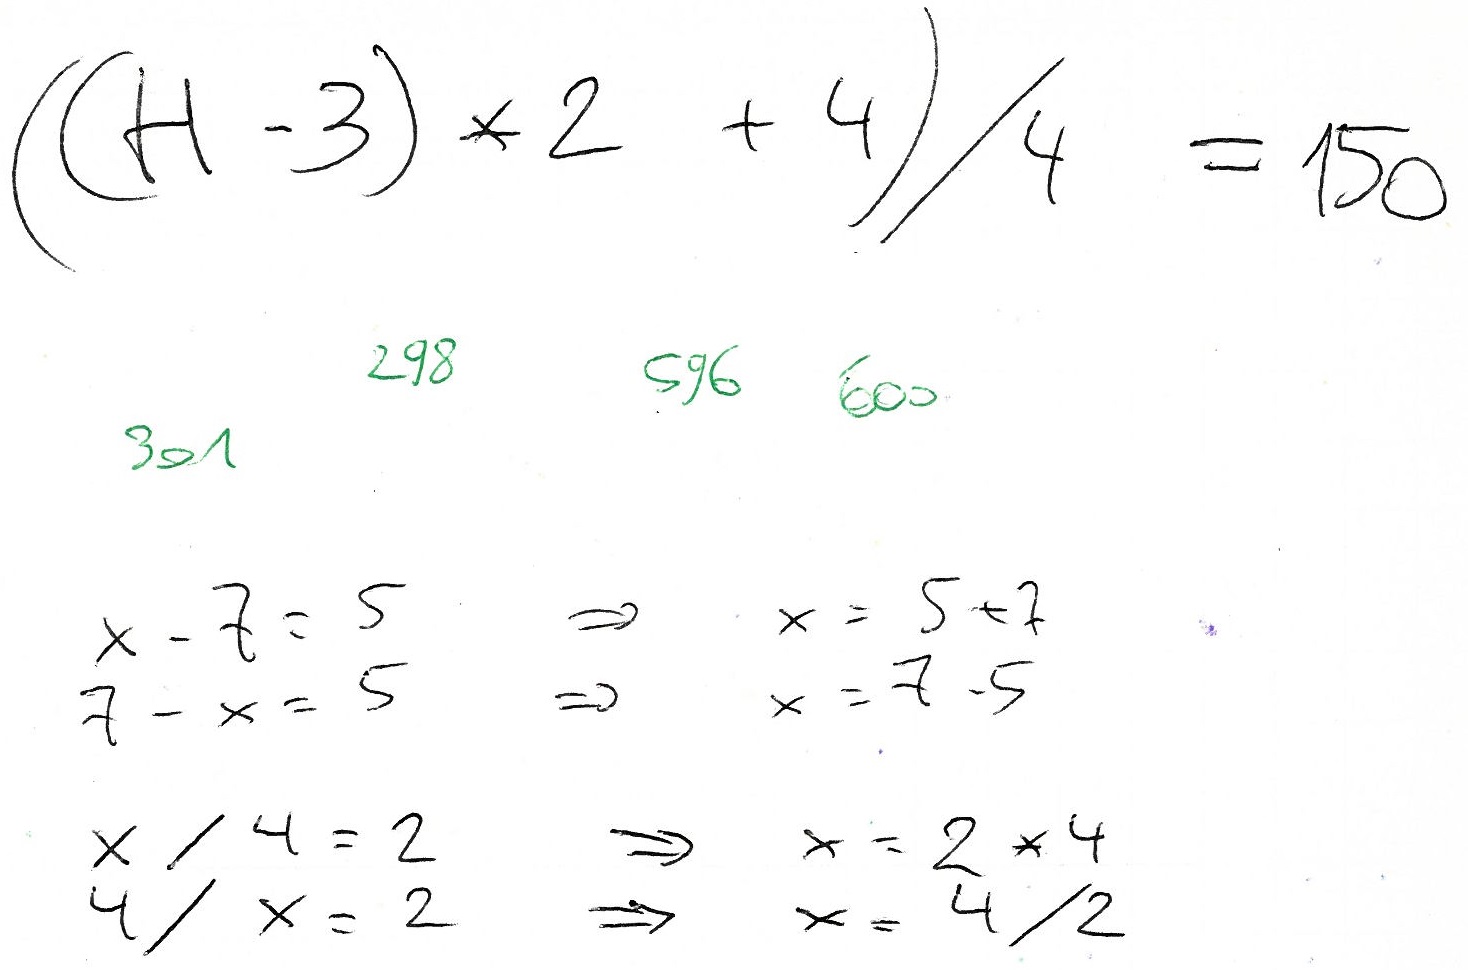 ((H - 3) * 2 + 4) / 4 = 150
298 596 600
301
x - 7 = 5 => x = 5 + 7
7 - x = 5 => x = 7 - 5
x / 4 = 2 => x = 2 * 4
4 / x = 2 => x = 4 / 2